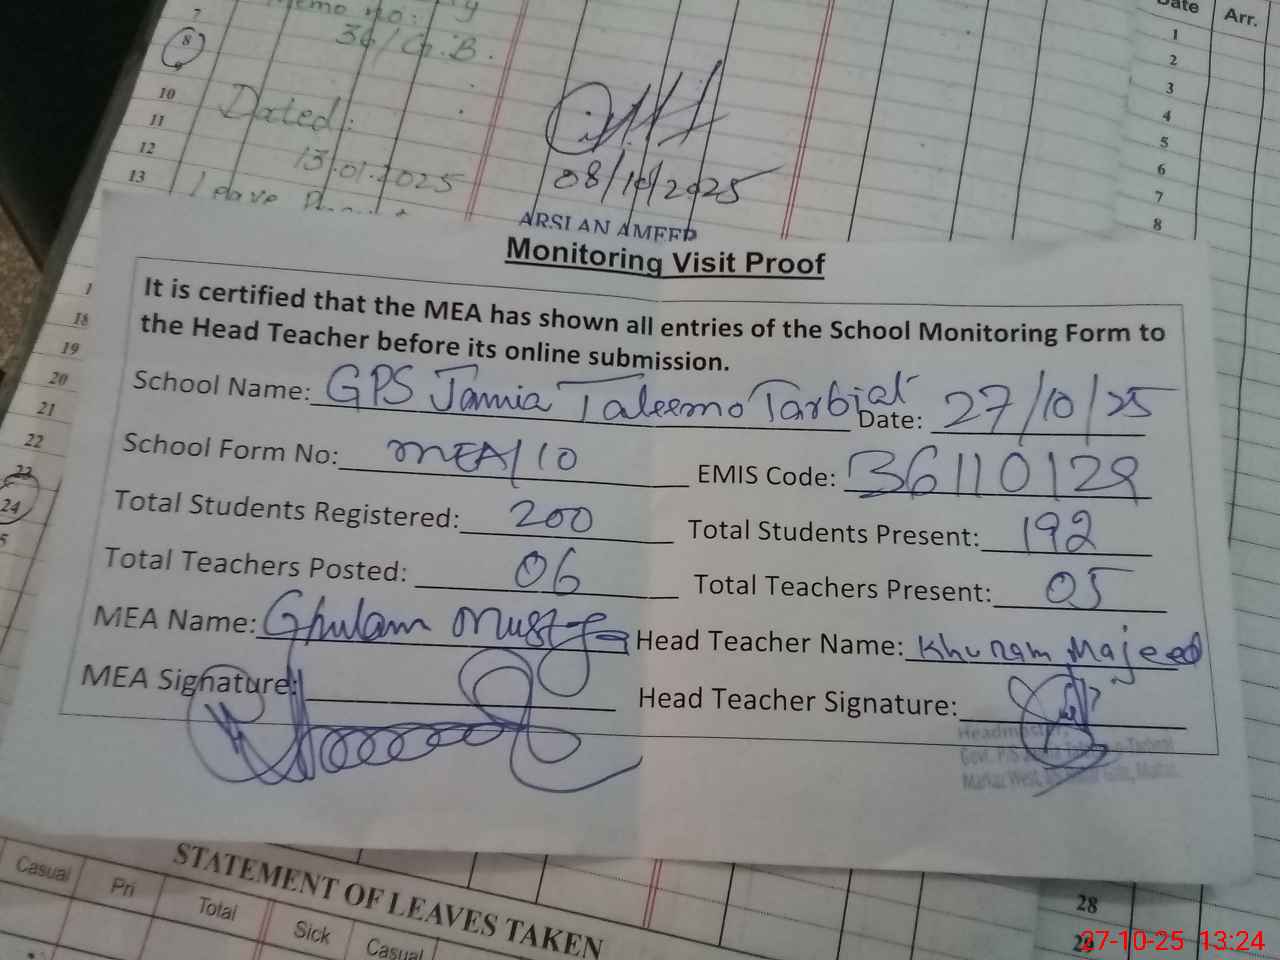 Memo no:
36/G.B.
7
8
10
11
12
13
Dated:
13.01.2025
Leave
08/10/2025
ARSLAN AMEER
Date Arr.
1
2
3
4
5
6
7
8
Monitoring Visit Proof
It is certified that the MEA has shown all entries of the School Monitoring Form to
the Head Teacher before its online submission.
School Name: GPS Jamia Taleemo Tarbiat Date: 27/10/25
School Form No: MEA/10 EMIS Code: 36110129
Total Students Registered: 200 Total Students Present: 192
Total Teachers Posted: 06 Total Teachers Present: 05
MEA Name: Ghulam Mustafa Head Teacher Name: Khuram Majeed
MEA Signature: Head Teacher Signature:
Headmaster,
18
19
20
21
22
23
24
STATEMENT OF LEAVES TAKEN
Casual Pri Total Sick Casual
28
27-10-25 13:24